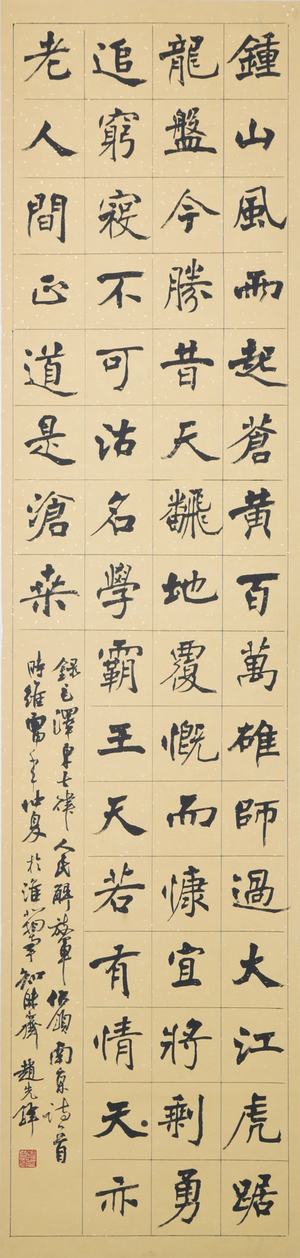 鍾山風雨起蒼黃百萬雄師過大江虎踞
龍盤今勝昔天飜地覆慨而慷宜將剩勇
追窮寇不可沽名學霸王天若有情天亦
老人間正道是滄桑
錄毛澤東七律人民解放軍佔領南京詩一首
時維仲夏於淮齋趙先